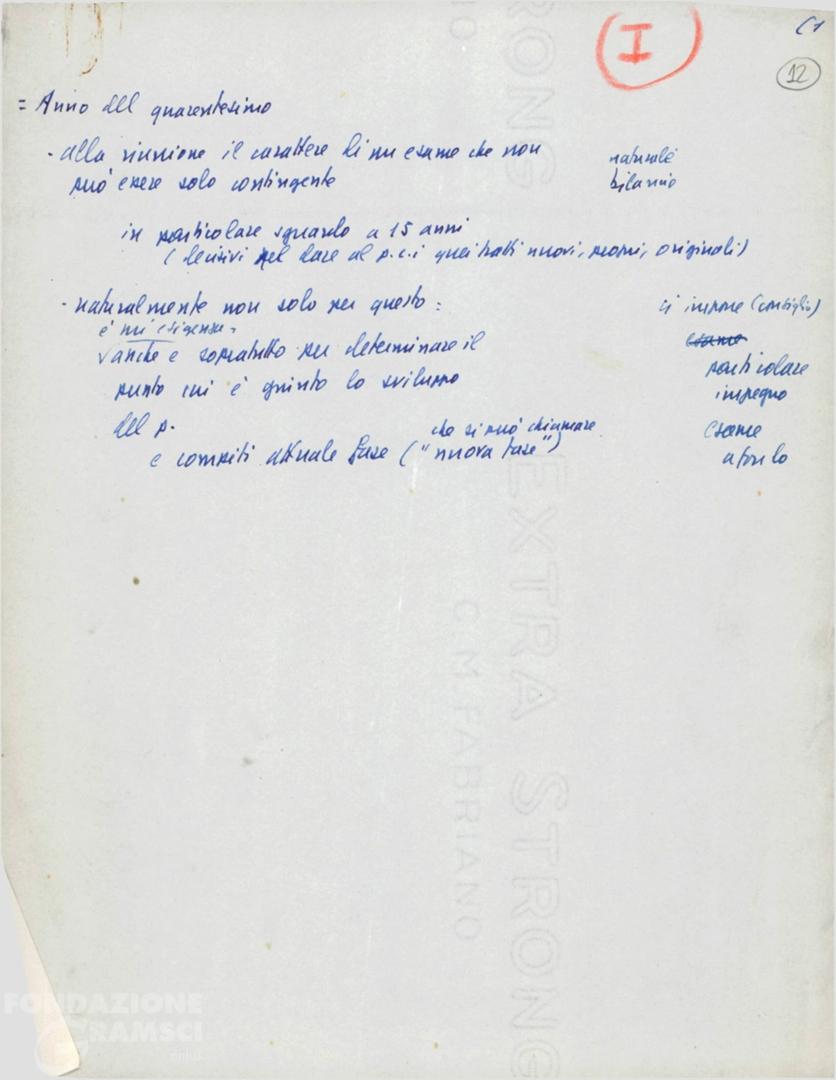 I
(1
12
= Anno del quarantesimo
- alla riunione il carattere di un esame che non
può essere solo contingente
naturale
bilancio
in particolare sguardo a 15 anni
(decisivi nel dare al p.c.i quei tratti nuovi, propri, originali)
- naturalmente non solo per questo:
è un'esigenza
anche e sopratutto per determinare il
punto cui è giunto lo sviluppo
del p.
e compiti attuale fase ("nuova fase")
che si può chiamare
ci impone (consiglio)
esame
particolare
impegno
esame
a fondo
EXTRA STRONG
C.M.FABRIANO
FONDAZIONE
GRAMSCI